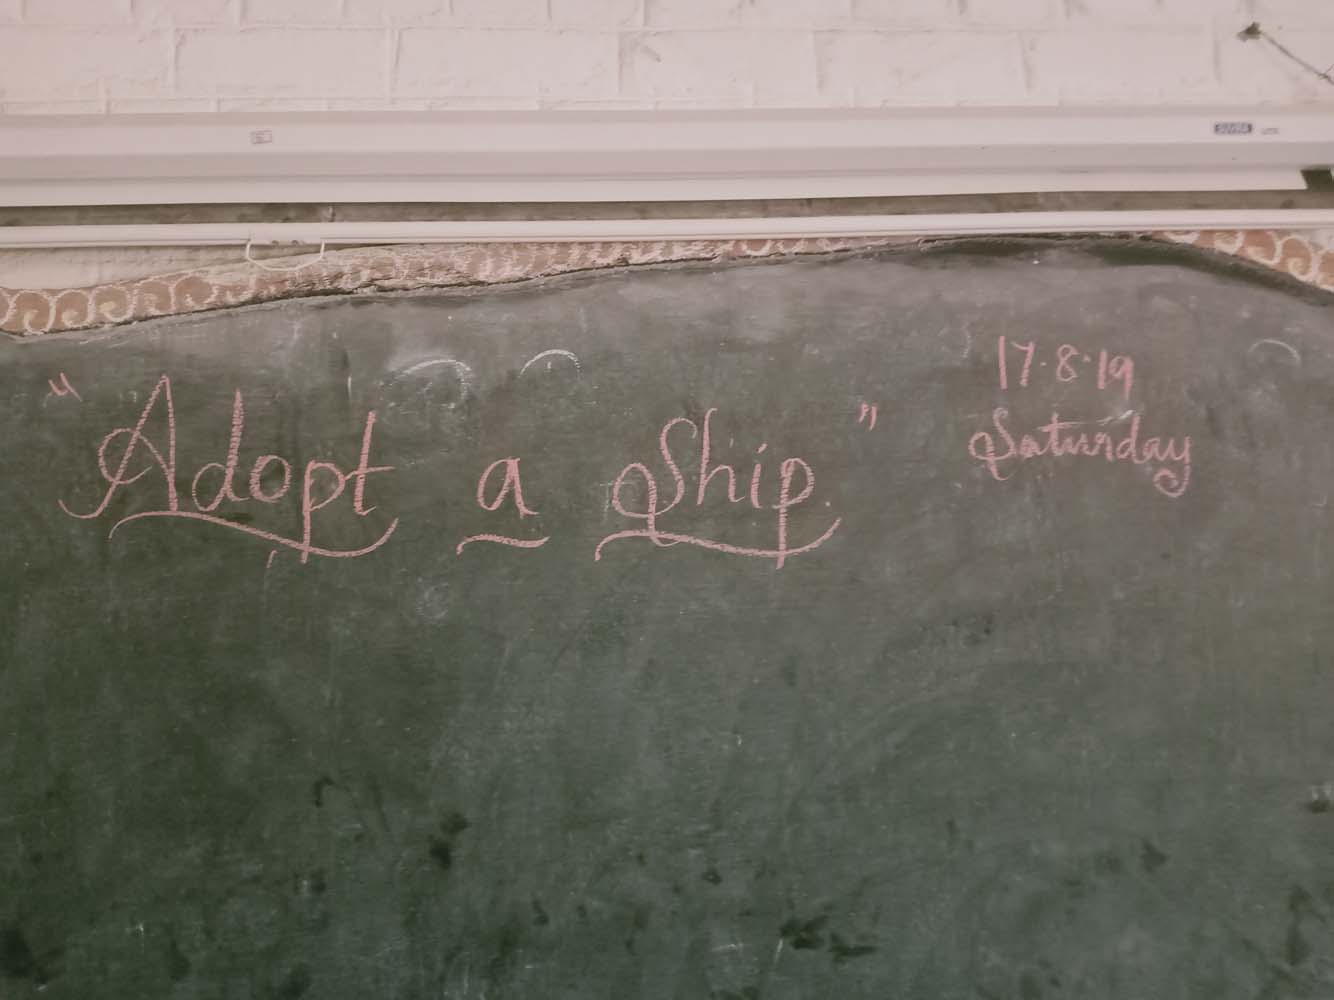 "Adopt a Ship."
17.8.19
Saturday